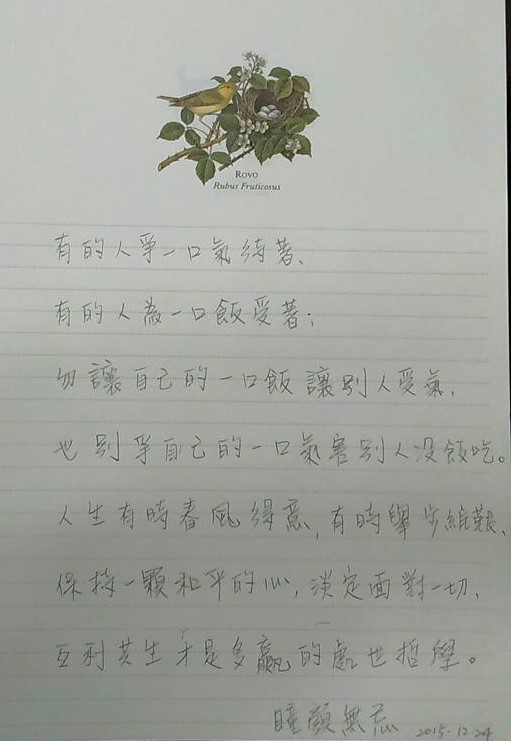 Rovo
Rubus Fruticosus
有的人爭一口氣待著、
有的人為一口飯受著；
勿讓自己的一口飯讓別人受氣，
也別爭自己的一口氣害別人沒飯吃。
人生有時春風得意，有時舉步維艱、
保持一顆和平的心，淡定面對一切，
互利共生才是多贏的處世哲學。
瞳顏無忌 2015.12.24